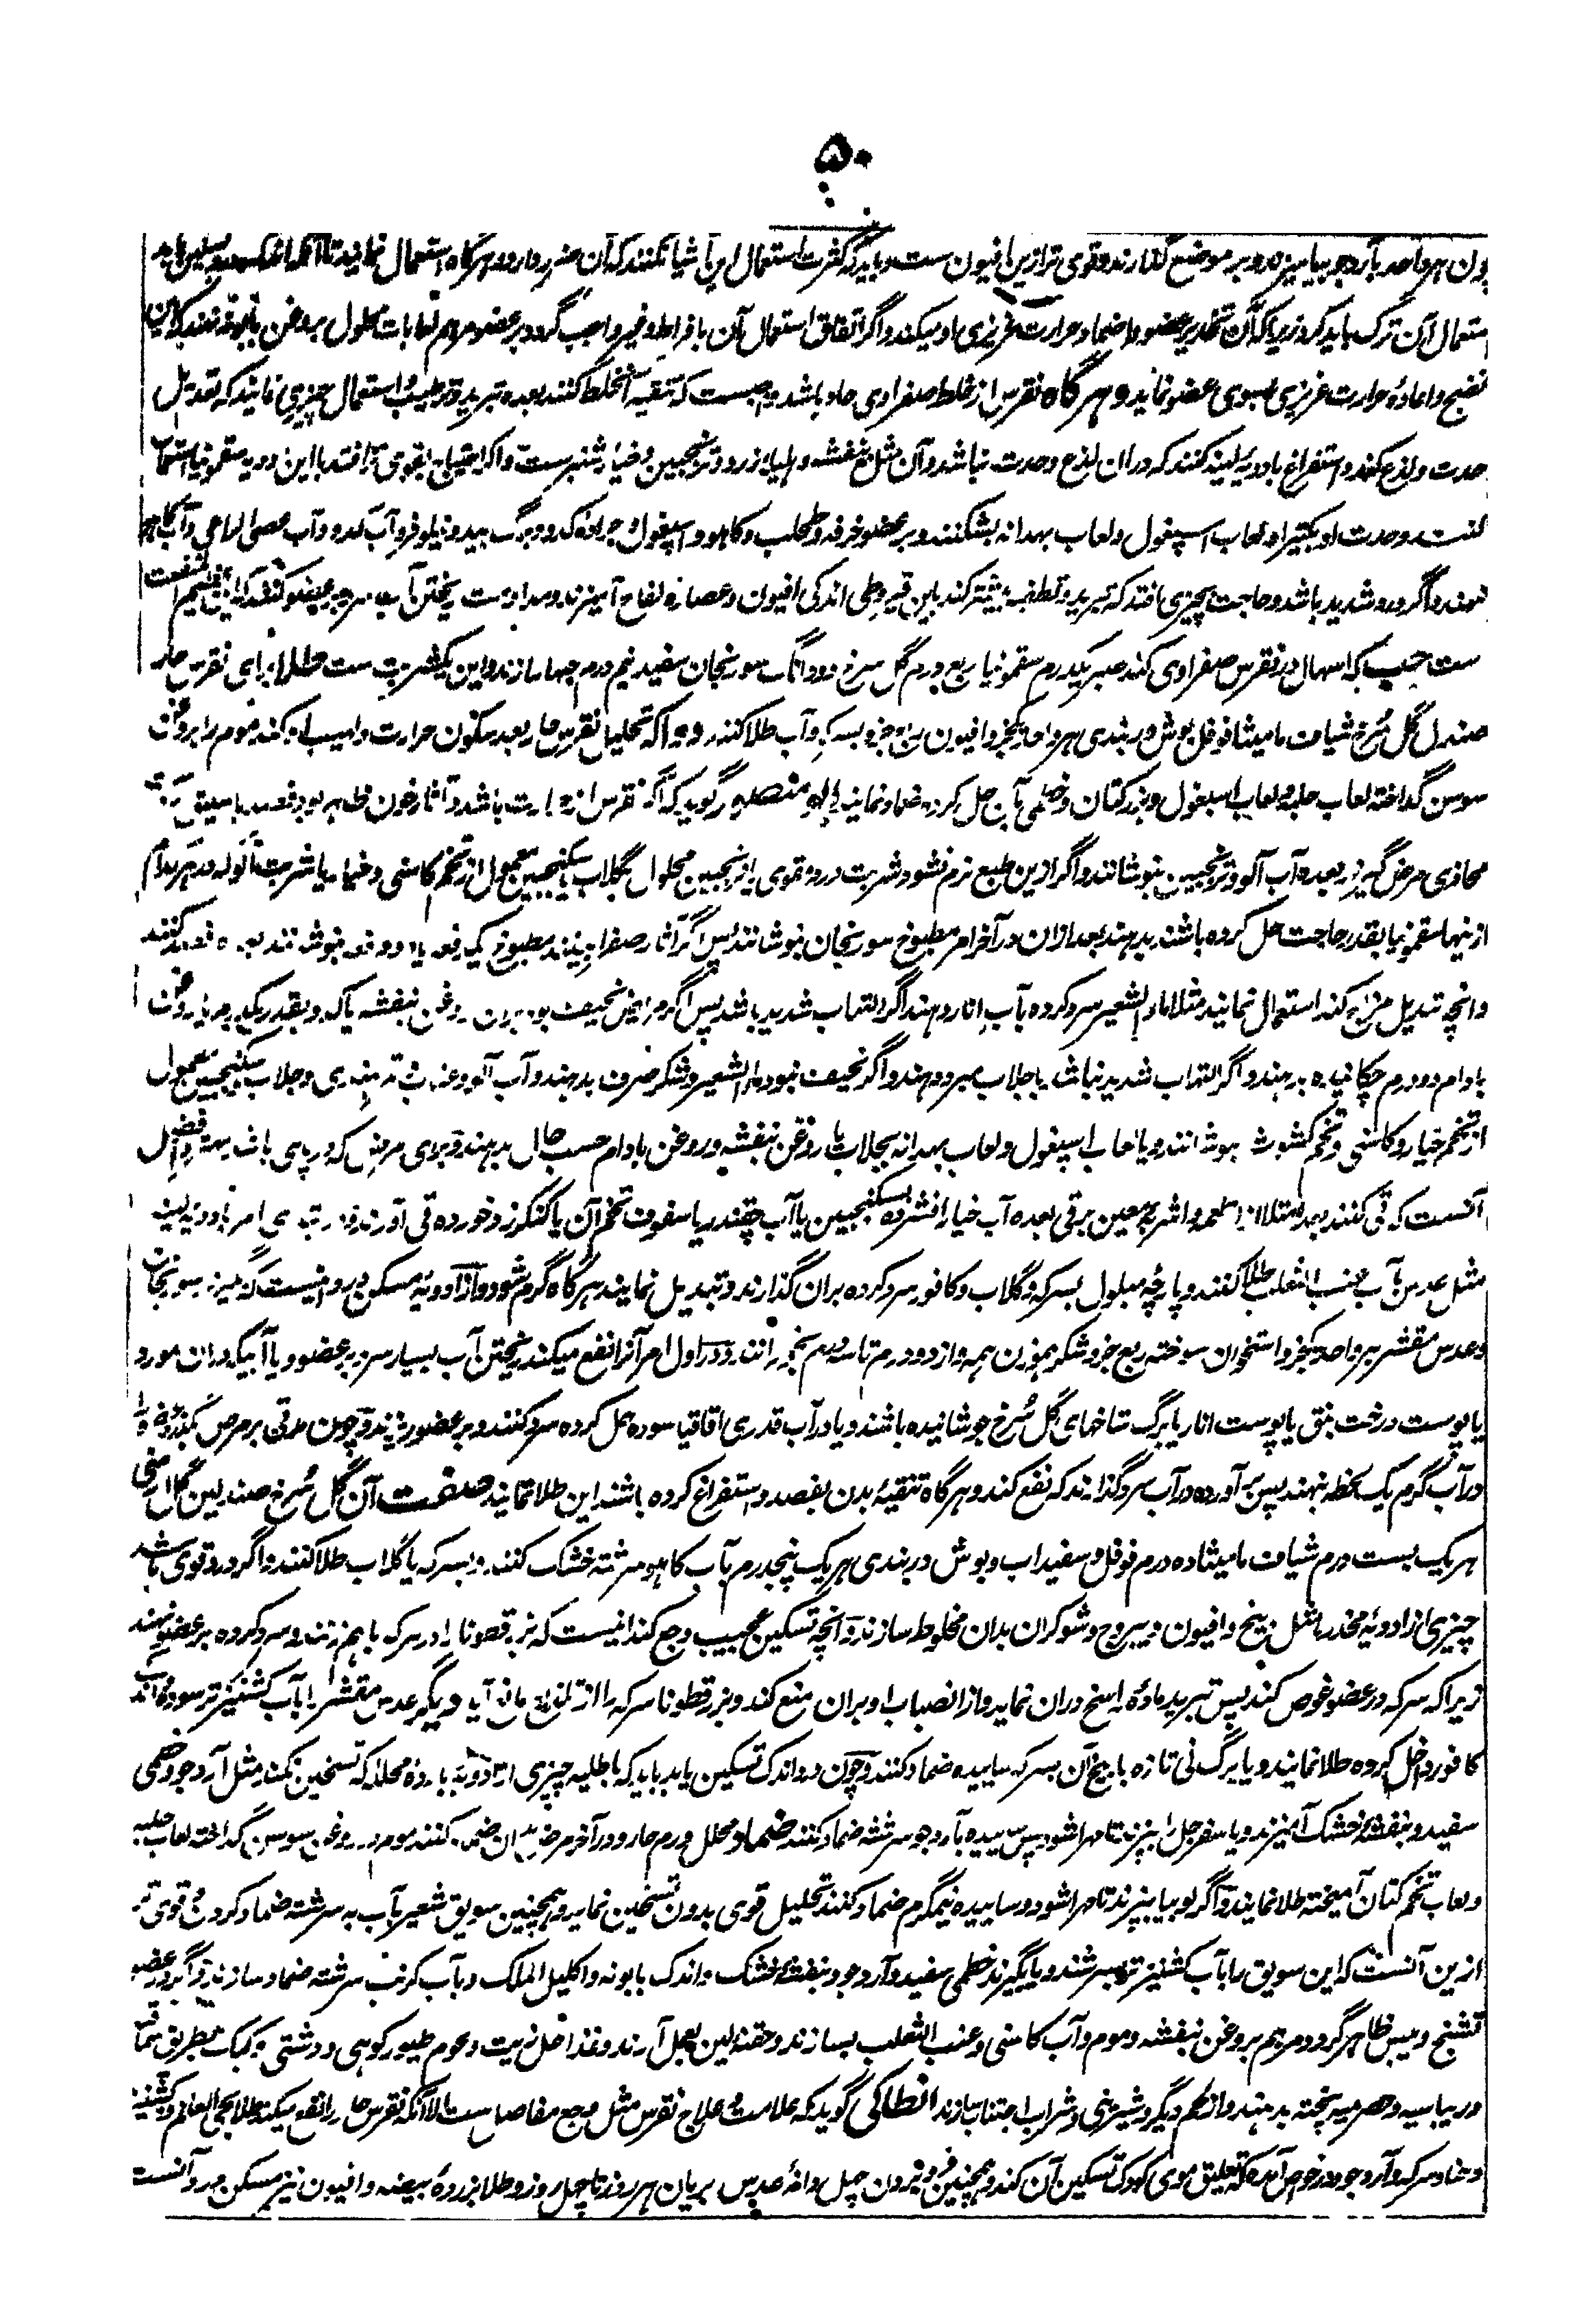 ۵۰
ون هر واحد بآرد جو بیامیزند و بر موضع گذارند و قوی تر ازین افیون ست و باید که کثرت استعمال این اشیا نکنند که آن ضرر دارد و هرگاه استعمال نمایند
استعمال آن ترک باید کرد زیرا که آن تخدیر عضو و اضماد حرارت غریزی او میکند و اگر اتفاق استعمال آن بافراط و غیر واجب گردد بر عضو مرهم لعابات محلول بروغن بابونه نهند که این
نضج و اعادهٔ حرارت غریزی بسوی عضو نماید و هرگاه نقرس از خلط صفراوی حاد باشد واجبست که تنقیه آن خلط کنند بعده تبرید و ترطیب باستعمال چیزی نمایند که تعدیل
حدت و لذع کند و استفراغ بادویهٔ لینه کنند که دران لذع و حدت نباشد و آن مثل بنفشه و هلیله زرد و ترنجبین و خیار شنبر ست و اگر احتیاج بقوی تر افتد با این ادویه سقمونیا استعمال
کنند و حدت او بکتیرا و لعاب اسپغول و لعاب بهدانه بشکنند و بر عضو خرفه و طحلب و کاهو و اسپغول و جراده کدو و برگ بید و نیلوفر و آب کدو و آب عصی الراعی و آب کاهو
نهند و اگر درد شدید باشد و حاجت بچیزی افتد که تبرید و تلطف بیشتر کند باین قیروطی اندکی افیون و عصاره لفاح آمیزند و مداومت ریختن آب سرد بر عضو کنند که این عظیم المنفعت
ست حب که اسهال در نقرس صفراوی کند صبر یکدرم سقمونیا ربع درم گل سرخ دو دانگ سورنجان سفید نیم درم حبها سازند و این یکشربت ست طلا برای نقرس حار
صندل گل سرخ شیاف مامیثا فوفل بوش دربندی هر واحد یکجز و افیون ربع جزو بسرکه و آب طلا کنند دوا که تحلیل نقرس حار بعد سکون حرارت و لهیب او کند موم را بروغن
سوسن گداخته لعاب حلبه و لعاب اسبغول و بزر کتان و خطمی بآن حل کرده ضماد نمایند ابو منصور گوید که اگر نقرس از حرارت باشد و آثار خون ظاهر بود فصد باسلیق
محاذی مرض گیرند بعده آب آلو و ترنجبین بنوشانند و اگر ازین طبع نرم نشود شربت ورد مقوی یا ترنجبین محلول بگلاب یا سکنجبین معمول از تخم کاسنی و خیار یا شربت آلو که در هر کدام
ازینها سقمونیا بقدر حاجت حل کرده باشند بدهند بعد ازان در آخر امر مطبوخ سورنجان بنوشانند پس اگر آثار صفرا بینند مطبوخ یک دفعه یا دو دفعه بنوشند بعده فصد کنند
و انچه تبدیل مزاج کند استعمال نمایند مثلا ماء الشعیر سرد کرده بآب انار دهند اگر التهاب شدید باشد پس اگر مریض نحیف بود بدون روغن بنفشه یا کدو بقدر یکدرم یا روغن
بادام دو درم چکانیده بدهند و اگر التهاب شدید نباشد با جلاب سرد دهند و اگر نحیف نبود ماء الشعیر و شکر صرف بدهند و آب آلو و عناب و تمر هندی و جلاب یا سکنجبین معمول
از تخم خیار و کاسنی و تخم کشوث بنوشانند و یا لعاب اسپغول و لعاب بهدانه بجلاب یا روغن بنفشه و روغن بادام حسب حال بدهند و برای مرض که در پای باشد بهترین افضال
آنست که قی کنند بعد امتلا از اطعمه و اشربه معین بر قی بعده آب خیار افشرده بسکنجبین یا آب چقندر یا سفوف تخم آن یا کنکرزد خورده قی آورند و در ابتدای امر بادویهٔ لینه
مثل عدس بآب عنب الثعلب طلا کنند و پارچه مبلول بسرکه و گلاب و کافور سرد کرده بران گذارند و تبدیل نمایند هرگاه گرم شود و از ادویهٔ مسکن درد اینست که گیرند سورنجان
و عدس مقشر هر واحد یکجز و استخوان سوخته ربع جزو شکر هموزن همه و از دو درم تا سه درم بخورانند و در اول امر آنرا نفع میکند ریختن آب بسیار سرد بر عضو و یا آبیکه دران مورد
یا پوست درخت بنق یا پوست انار یا برگ شاخهای گل سرخ جوشانیده باشند و یا در آب قدری اقاقیا سوده حل کرده سرد کنند و بر عضو ریزند و چون مدتی بر مرض بگذرد عضو را
در آب گرم یک لحظه نهند پس برآورده در آب سرد گذارند که نفع کند و هرگاه تنقیهٔ بدن بفصد و استفراغ کرده باشند این طلا نمایند صفت آن گل سرخ صندلین گل ارمنی
هر یک بست درم شیاف مامیثا ده درم فوفل و سفیداب و بوش دربندی هر یک پنجدرم بآب کاهو سرشته خشک کنند و بسرکه یا گلاب طلا کنند و اگر درد قوی باشد
چیزی از ادویهٔ مخدر مثل بنج و افیون و یبروج و شوکران بدان مخلوط سازند و آنچه تسکین عجیب وجع کند اینست که بزر قطونا را در سرکه باهم زنند و سرد کرده بر عضو نهند
زیرا که سرکه در عضو غوص کند پس تبرید مادهٔ راسخ دران نماید و از انصباب او بران منع کند و بزر قطونا سرکه را از لذع مانع آید دیگر عدس مقشر را بآب کشنیز تر سوده اندک
کافور داخل کرده طلا نمایند و یا برگ نی تازه یا بیخ آن بسرکه ساییده ضماد کنند و چون درد اندک تسکین یابد باید که باطلیه چیزی از ادویه بارده محلله که تسخین نکند مثل آرد جو و خطمی
سفید و بنفشه خشک آمیزند و یا سفرجل را بپزند تا مهرا شود پس ساییده بآرد جو سرشته ضماد کنند ضماد محلل ورم حار و در آخر مرض بدان ضماد کنند موم در روغن سوسن گداخته لعاب حلبه
و لعاب تخم کتان آمیخته طلا نمایند و اگر لوبیا بپزند تا مهرا شود و ساییده نیمگرم ضماد کنند تحلیل قوی بدون تسخین نماید و همچنین سویق شعیر بآب به سرشته ضماد کردن و قوی تر
ازین آنست که این سویق را بآب کشنیز تر بسرشند و یا بگیرند خطمی سفید و آرد جو و بنفشه خشک و اندک بابونه و اکلیل الملک و بآب کرنب سرشته ضماد سازند و اگر در عضو
تشنج و یبس ظاهر گردد مرهم بروغن بنفشه و موم و آب کاسنی و عنب الثعلب بسازند و حقنه لین بعمل آرند و غذا خل زیت و لحوم طیور کوهی و دشتی و کبک بطریق سماقیه
و ریباسیه و حصرمیه پخته بدهند و از لحم دیگر و شیرینی و شراب اجتناب سازند انطاکی گوید که علامت و علاج نقرس مثل وجع مفاصل ست الا آنکه نقرس حار را نفع میکند طلا بحی العالم و کشنیز
و ضماد سرکه و آرد جو و در خواص آمده که تعلیق موی کودک تسکین آن کند و همچنین فرو بردن چهل دانهٔ عدس بریان هر روز تا چهل روز و طلا بزردهٔ بیضه و افیون نیز مسکن درد آنست